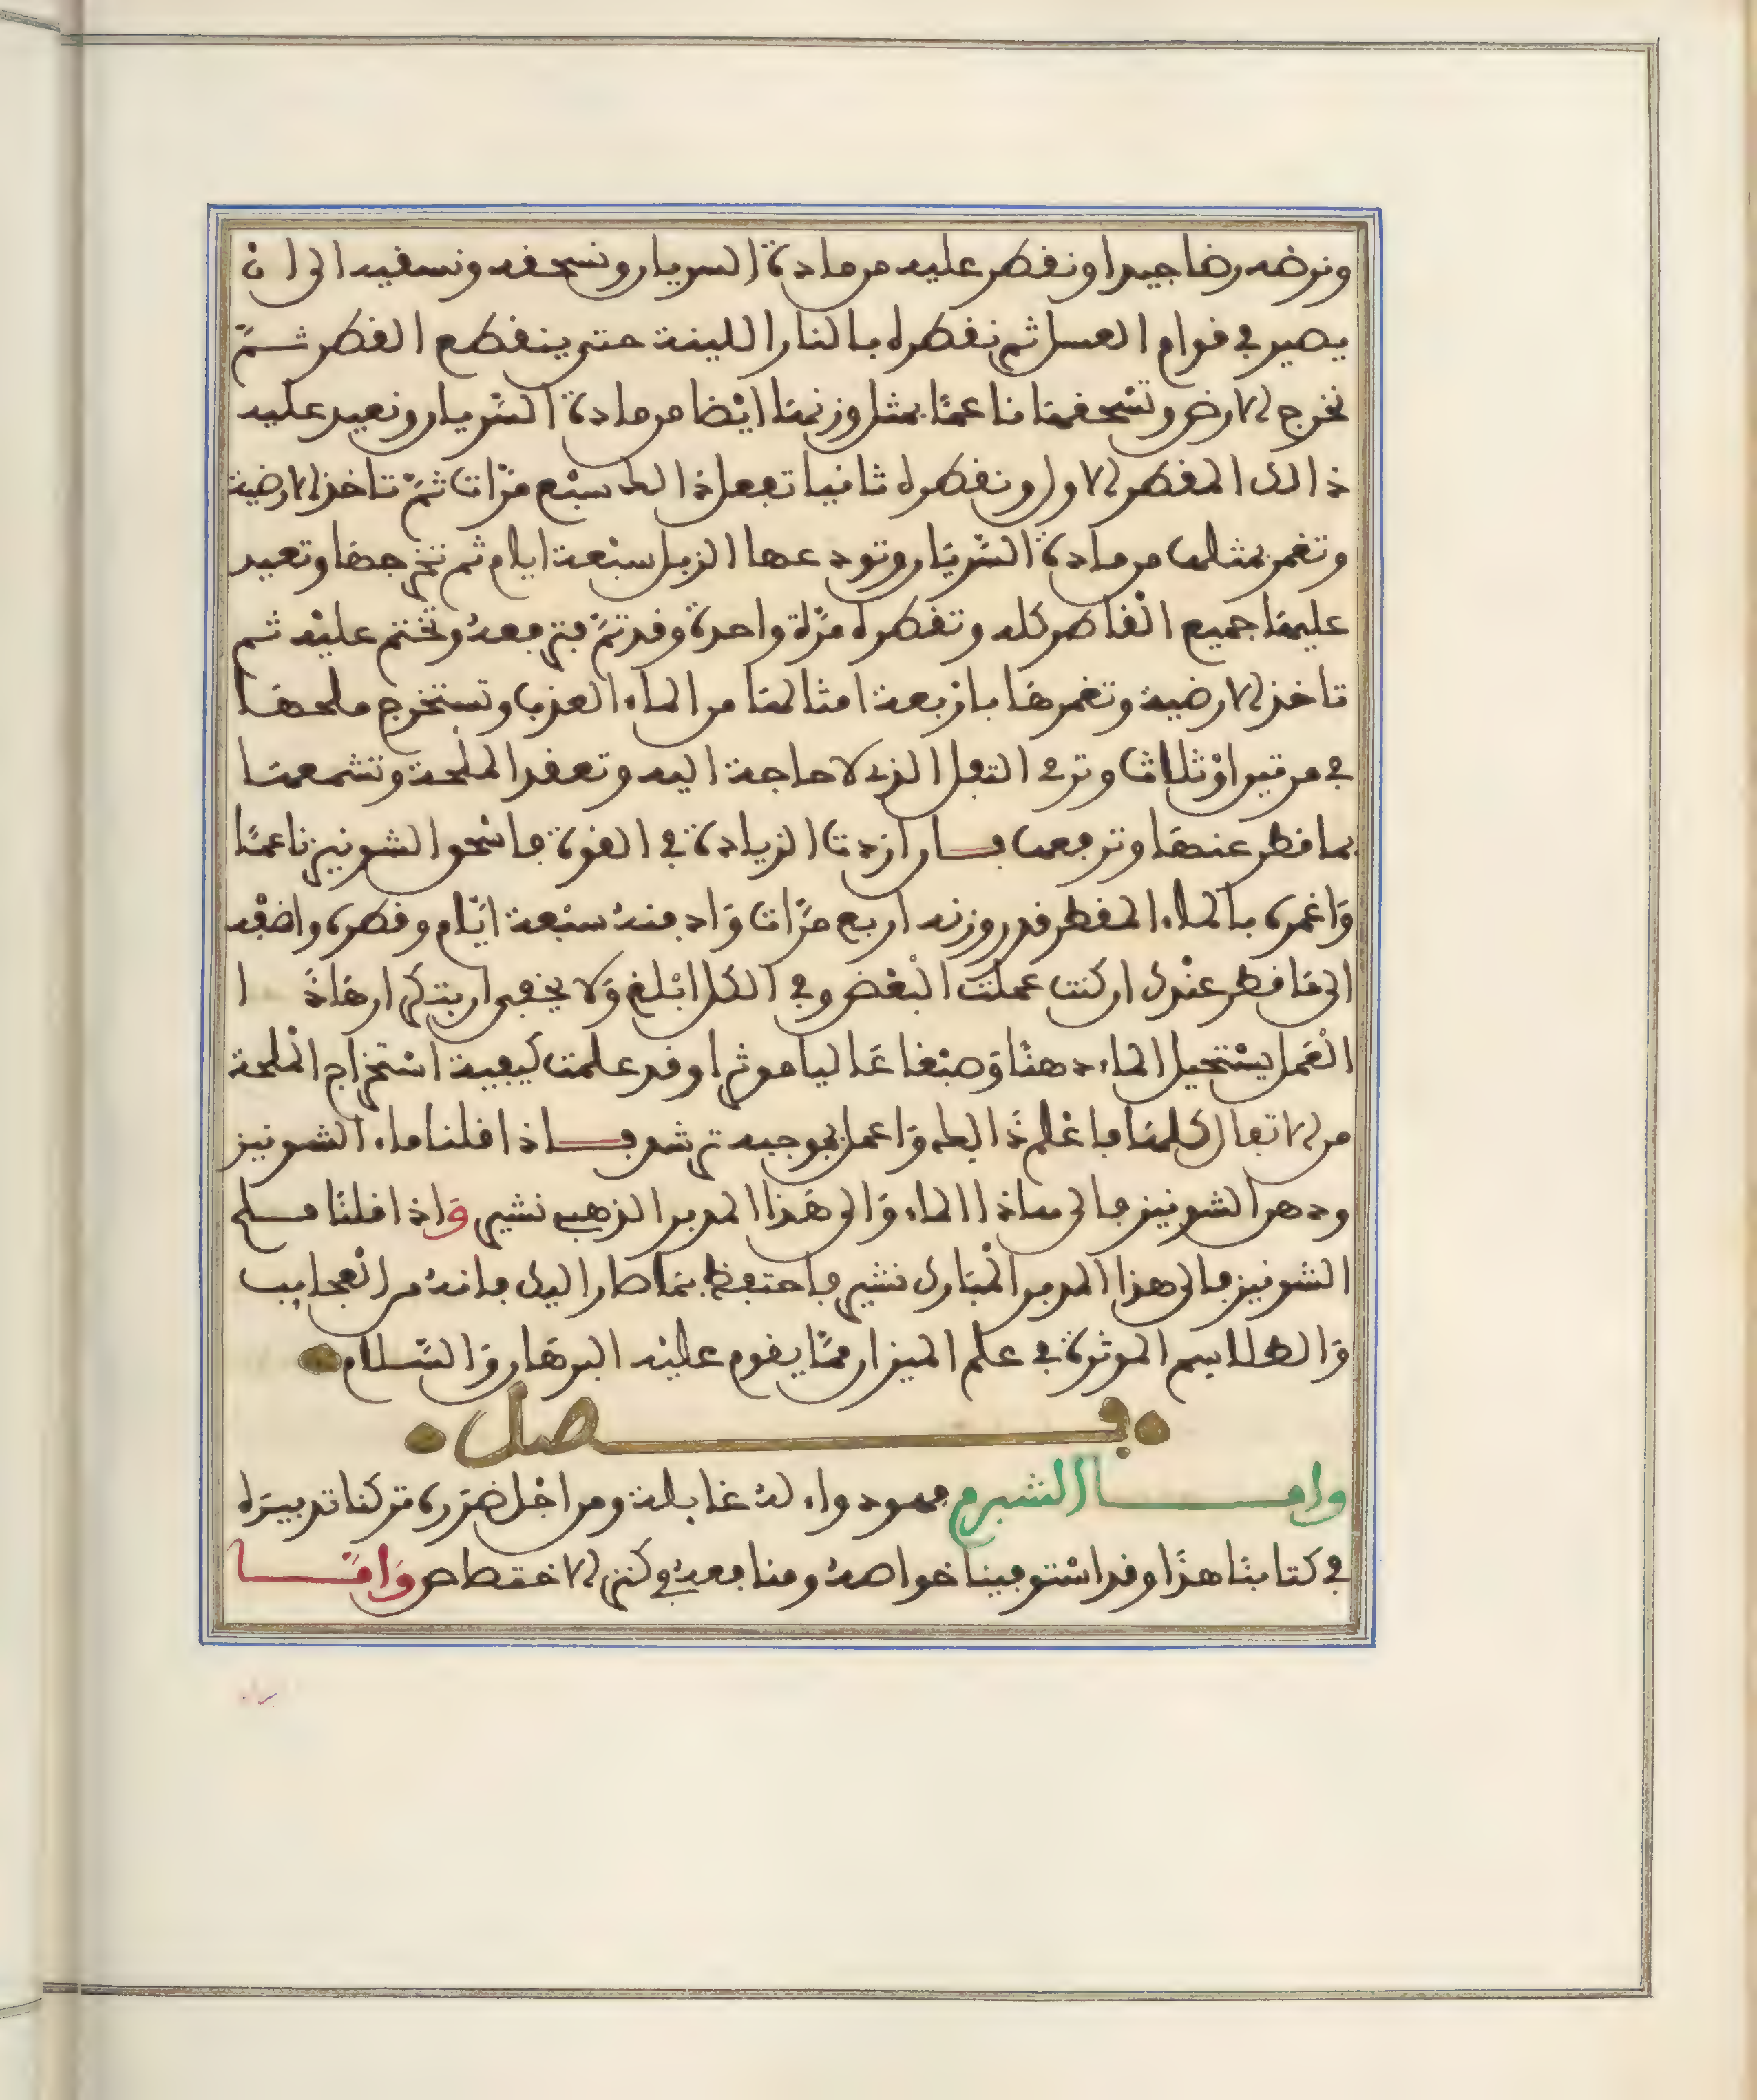 ونرضه رضا جيدا ونقطر عليه من مادة السريان ونسحقه ونسقيه الى ان
يصير في قوام العسل ثم نقطره بالنار اللينة حتى ينقطع القطر ثمّ
نخرج الارض وتسْحقها ناعمًا بمثل وزنها ايْضا من مادة السّريان ونعيد عليه
ذالك المقطر الاول ونقطره ثانيا تفعل ذالك سبْع مرّات ثمّ تاخذ الارضية
وتغمر بمثلها من مادة السّريَان وتودعها الزبل سبْعة ايام ثم تخرجهَا وتعيد
عليهَا جميع القاطر كله وتقطره مرّة واحدة وقد تمّ فترفعهُ وتختم عليْه ثم
تاخذ الارضية وتغمرهَا بارْبعة امثالهَا من الماء العذب وتستخرج ملحهَا
في مرتين اوْ ثلاثا وترمى التفل الذى لا حاجة اليه وتعقد الملحة وتشمعهَا
بما قطر عنهَا وترفعها فان اردت الزيادة في القوة فاسْحق الشونيز ناعمًا
وَاغمره بالماء المقطر قدر وزنه اربع مرَّات وَادفنهُ سبْعة ايّام وقطره واضفْه
الى مَا قطر عنْدك ان كنت عملت البْعْض وفي الكل ابْلغ وَلا يخفى ان بتكرار هَاذَا
الْعَمل يسْتحيل الماء دهنًا وَصبْغا عَاليا موثرا وقد علمت كيفية اسْتخراج الْملحة
من الاتفال كلهَا فاعْلم ذَالك وَاعمل بموجبه ترشد فاذا قلنا ماء الشونيز
ودهن الشونيز فالى هاذا الماء وَالى هَذا المدبر الذهبي نشير وَاذا قلنَا ملح
الشونيز فالى هذا المدبر الْمبَارك نشير فاحتفظ بمَا صار اليك فانهُ من الْعجايب
وَالطلاسم الموثرة في علم الميزان ممَّا يقوم عليْه البرهَان وَالسَّلام
فصل
وامـا الشبرم فهو دواء لهُ غايلة ومن اجْل ضرَره تركنا تدبيرَه
في كتابنَا هذَا وقد اسْتوفينا خواصهُ ومنافعهُ في كنز الاختصاص وَامَّـا